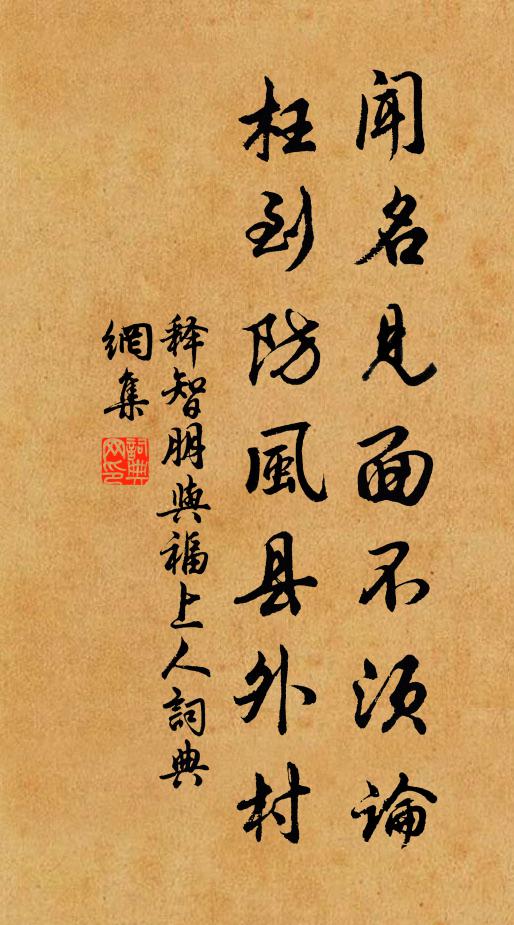 闻名见面不须论
枉到防風县外村
释智朋與福上人詞典
網集
詞典
网印